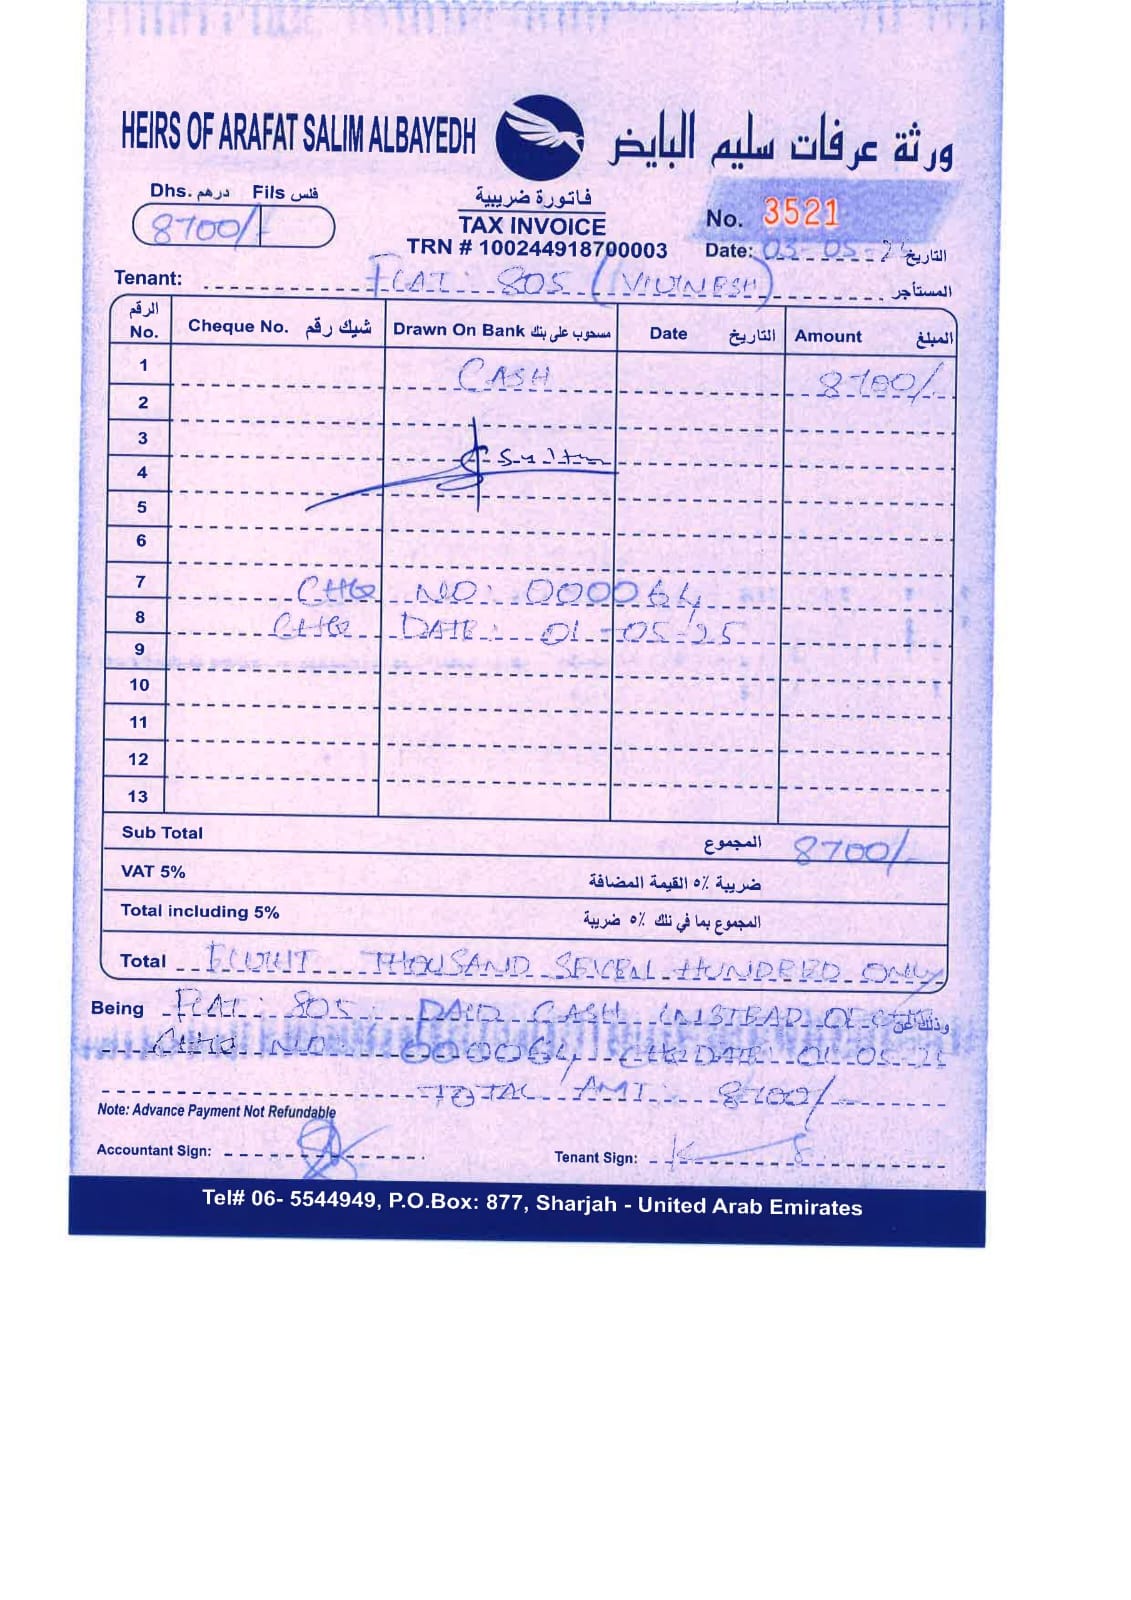 HEIRS OF ARAFAT SALIM ALBAYEDH ورثة عرفات سليم البايض
Dhs. درهم Fils فلس
8700/-
فاتورة ضريبية
TAX INVOICE
TRN # 100244918700003
No. 3521
Date: 03-05- التاريخ
Tenant: FLAT: 805 (VIGNESH) المستأجر
الرقم No. Cheque No. شيك رقم Drawn On Bank مسحوب على بنك Date التاريخ Amount المبلغ
1 CASH 8700/-
2
3
4
5
6
7 CHQ NO: 000064
8 CHQ DATE: 01-05-25
9
10
11
12
13
Sub Total المجموع 8700/-
VAT 5% ضريبة ٥٪ القيمة المضافة
Total including 5% المجموع بما في ذلك ٥٪ ضريبة
Total EIGHT THOUSAND SEVEN HUNDRED ONLY
Being FLAT: 805 PAID CASH INSTEAD OF وذلك عن
CHQ NO: 000064 CHQ DATE: 01-05-25
TOTAL AMT: 8700/-
Note: Advance Payment Not Refundable
Accountant Sign:
Tenant Sign:
Tel# 06- 5544949, P.O.Box: 877, Sharjah - United Arab Emirates